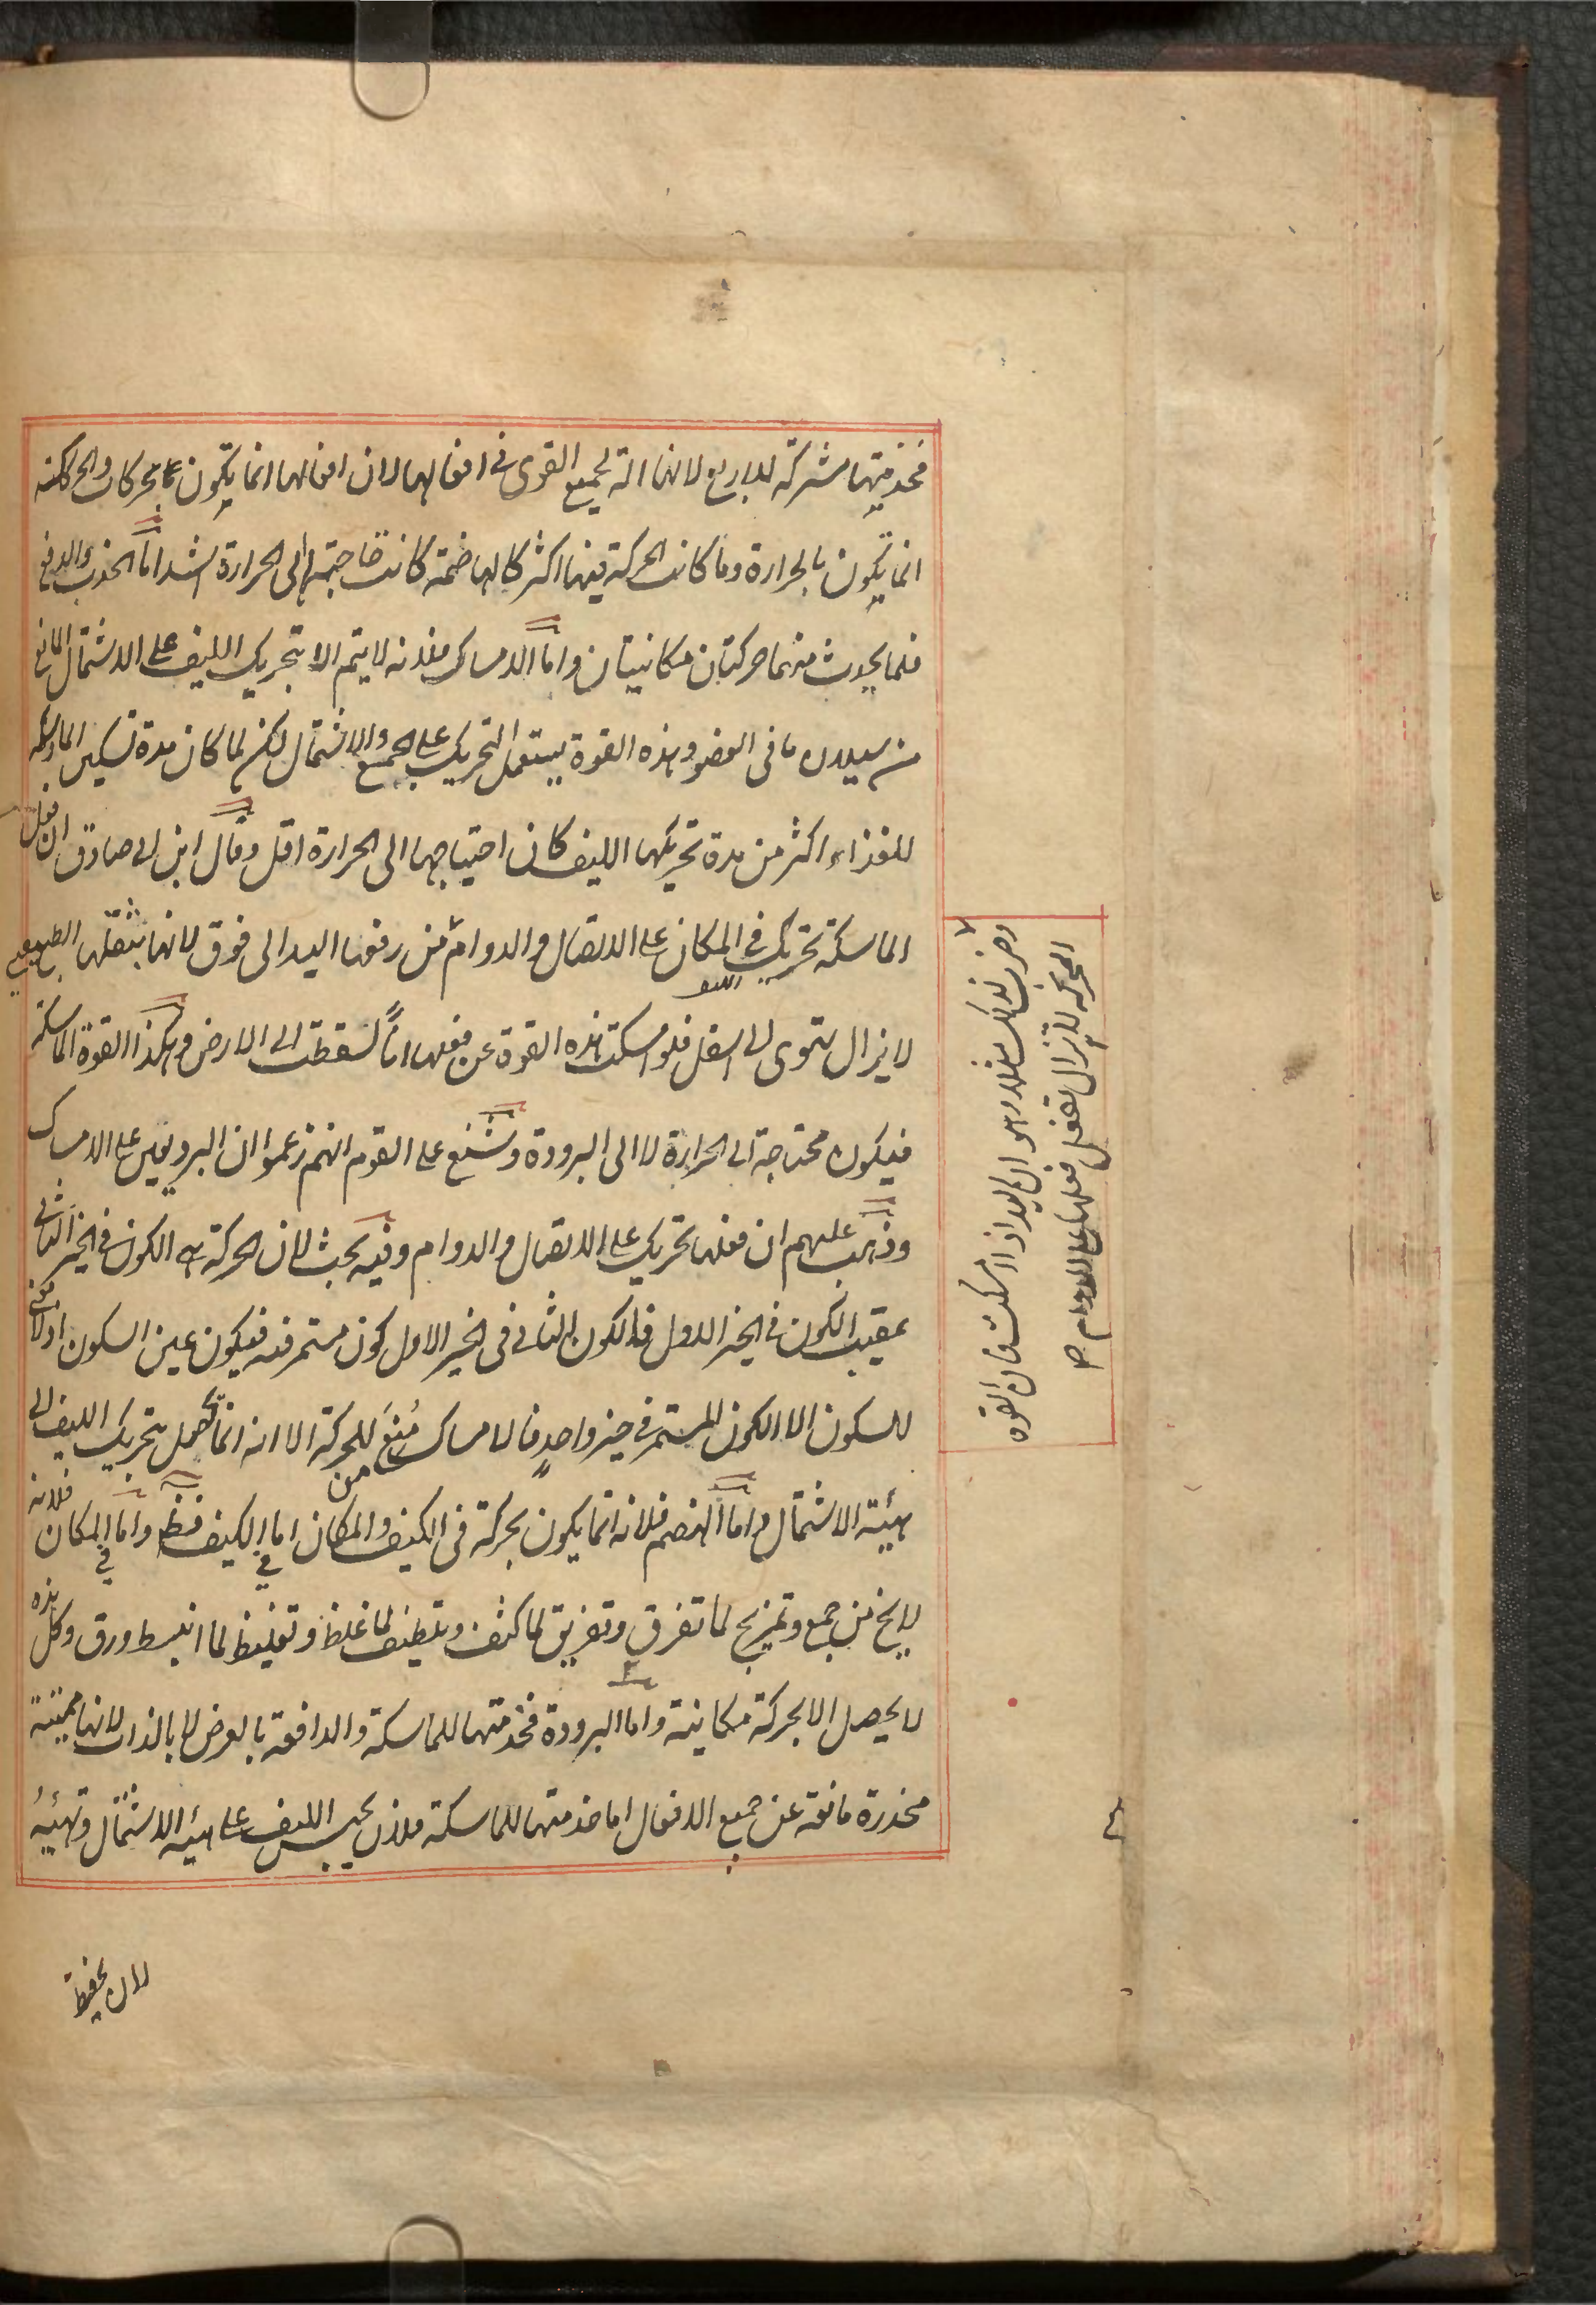 فخدمتها مشتركة للاربع لانها آلة لجميع القوى فى افعالها لان افعالها انما يكون بحركات والحركة
انما يكون بالحرارة وما كانت الحركة فيها اكثر كالهاضمة كانت حاجتها الى الحرارة اشد اما الجذب والدفع
فلما يحدث منهما حركتان مكانيتان واما الامساك فلانه لا يتم الا بتحريك الليف على الاشتمال المانع
من سيلان ما فى العضو وهذه القوة يستعمل التحريك على الجمع والاشتمال لكن لما كان مدة تسكين الماسكة
للغذاء اكثر من مدة تحريكها الليف كان احتياجها الى الحرارة اقل وقال ابن ابى صادق ان فعل
الماسكة تحريك فى المكان على الاتصال والدوام من رفعها اليد الى فوق لانها بثقلها الطبيعى
لا يزال تتهوى الى اسفل فلو امسكت هذه القوة عن فعلها آناً لسقطت الى الارض وهكذا القوة الماسكة
فيكون محتاجة الى الحرارة لا الى البرودة وشنع على القوم انهم زعموا ان البرد يعين على الامساك
وذهب عليهم ان فعلها تحريك على الاتصال والدوام وفيه بحث لان الحركة هى الكون فى الحيز الثانى
عقيب الكون فى الحيز الاول فالكون الثانى فى الحيز الاول كون مستمر فيه فيكون عين السكون اذ لا معنى
للسكون الا الكون المستمر فى حيز واحد فالامساك منع للحركة الا انه انما يحصل بتحريك الليف الى
هيئة الاشتمال واما الهضم فلانه انما يكون بحركة فى الكيف والمكان اما فى الكيف فظ واما فى المكان فلانه
لا يخ من جمع وتمزيج لما تفرق وتفريق لما كثف وتلطيف لما غلظ وتغليظ لما انبسط ورق وكل هذه
لا يحصل الا بحركة مكانية واما البرودة فخدمتها للماسكة والدافعة بالعرض لا بالذات لانها مميتة
مخدرة مانعة عن جميع الافعال اما خدمتها للماسكة فلان يحبس الليف على هيئة الاشتمال وتهيئه
وضرب لذلك مثلا وهو ان اليد اذا امسكت فان القوة
المحركة لا يزال تفعل فعلها على الدوام صح
لان يحفظ